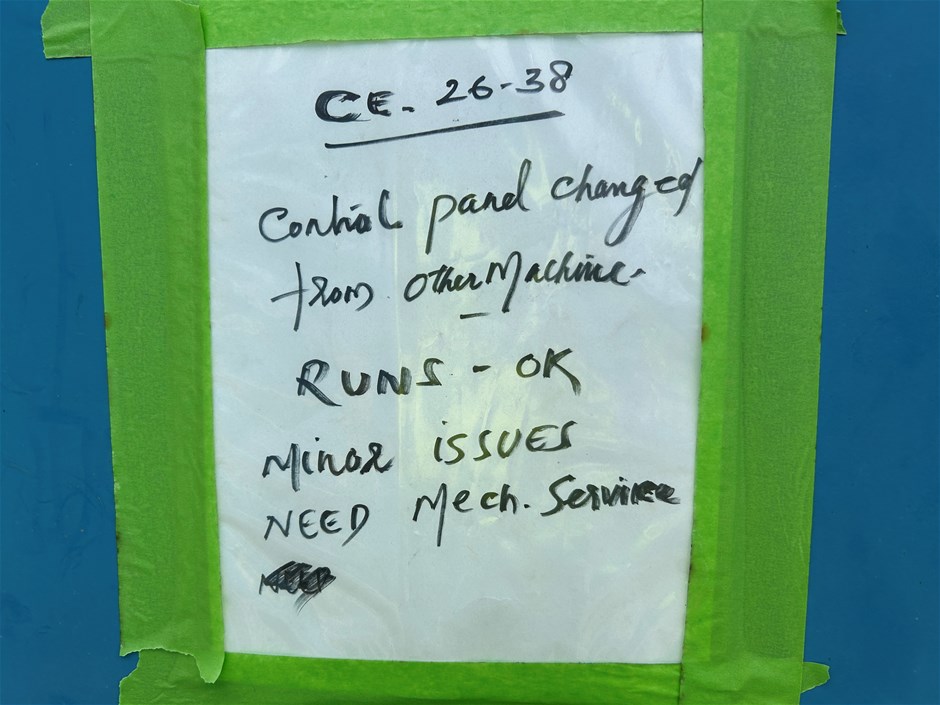 CE. 26-38
Control panel changed
from Other Machine.
RUNS - OK
Minor ISSUES
NEED Mech. Service